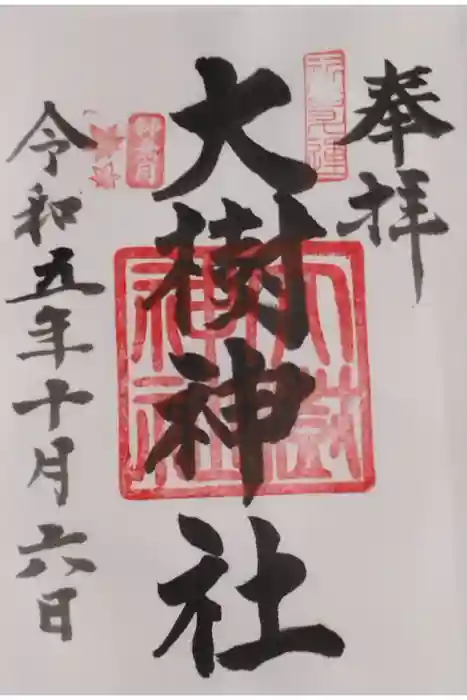 奉拝
大樹神社
令和五年十月六日
大樹神社